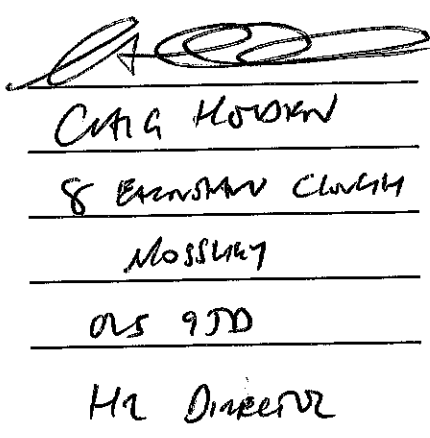 CRAIG HOLDEN
8 EARNSHAW CLOUGH
MOSSLEY
OL5 9JD
HR DIRECTOR